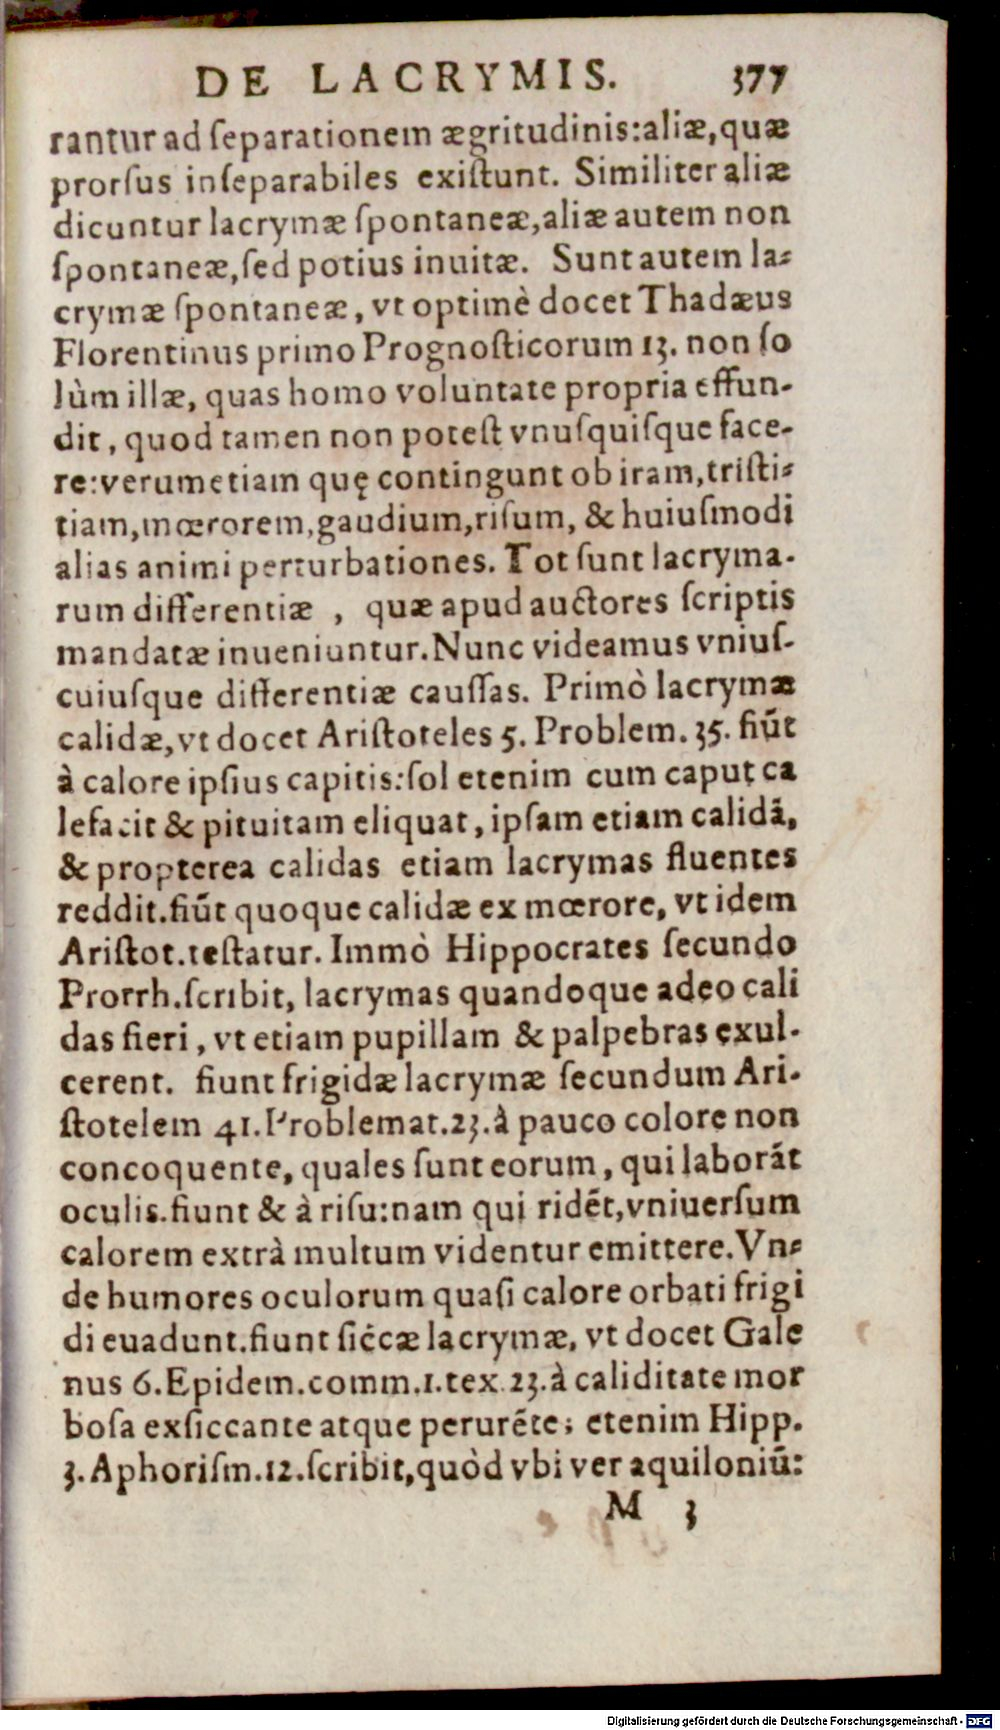 DE LACRYMIS. 377
rantur ad ſeparationem ægritudinis:aliæ,quæ
prorſus inſeparabiles exiſtunt. Similiter aliæ
dicuntur lacrymæ ſpontaneæ,aliæ autem non
ſpontaneæ,ſed potius inuitæ. Sunt autem la-
crymæ ſpontaneæ, vt optimè docet Thadæus
Florentinus primo Prognoſticorum 13. non ſo
lùm illæ, quas homo voluntate propria effun-
dit, quod tamen non poteſt vnuſquiſque face-
re:verumetiam quę contingunt ob iram,triſti-
tiam,mœrorem,gaudium,riſum, & huiuſmodi
alias animi perturbationes. Tot ſunt lacryma-
rum differentiæ , quæ apud auctores ſcriptis
mandatæ inueniuntur.Nunc videamus vniuſ-
cuiuſque differentiæ cauſſas. Primò lacrymæ
calidæ,vt docet Ariſtoteles 5. Problem. 35. fiūt
à calore ipſius capitis:ſol etenim cum caput ca
lefacit & pituitam eliquat, ipſam etiam calidā,
& propterea calidas etiam lacrymas fluentes
reddit.fiūt quoque calidæ ex mœrore, vt idem
Ariſtot.teſtatur. Immò Hippocrates ſecundo
Prorrh.ſcribit, lacrymas quandoque adeo cali
das fieri, vt etiam pupillam & palpebras exul-
cerent. fiunt frigidæ lacrymæ ſecundum Ari-
ſtotelem 41.Problemat.23.à pauco colore non
concoquente, quales ſunt eorum, qui laborāt
oculis.fiunt & à riſu:nam qui ridēt,vniuerſum
calorem extrà multum videntur emittere.Vn-
de humores oculorum quaſi calore orbati frigi
di euadunt.fiunt ſiccæ lacrymæ, vt docet Gale
nus 6.Epidem.comm.1.tex.23.à caliditate mor
boſa exſiccante atque perurēte; etenim Hipp.
3.Aphoriſm.12.ſcribit,quòd vbi ver aquiloniū:
M 3
Digitalisierung gefördert durch die Deutsche Forschungsgemeinschaft - DFG